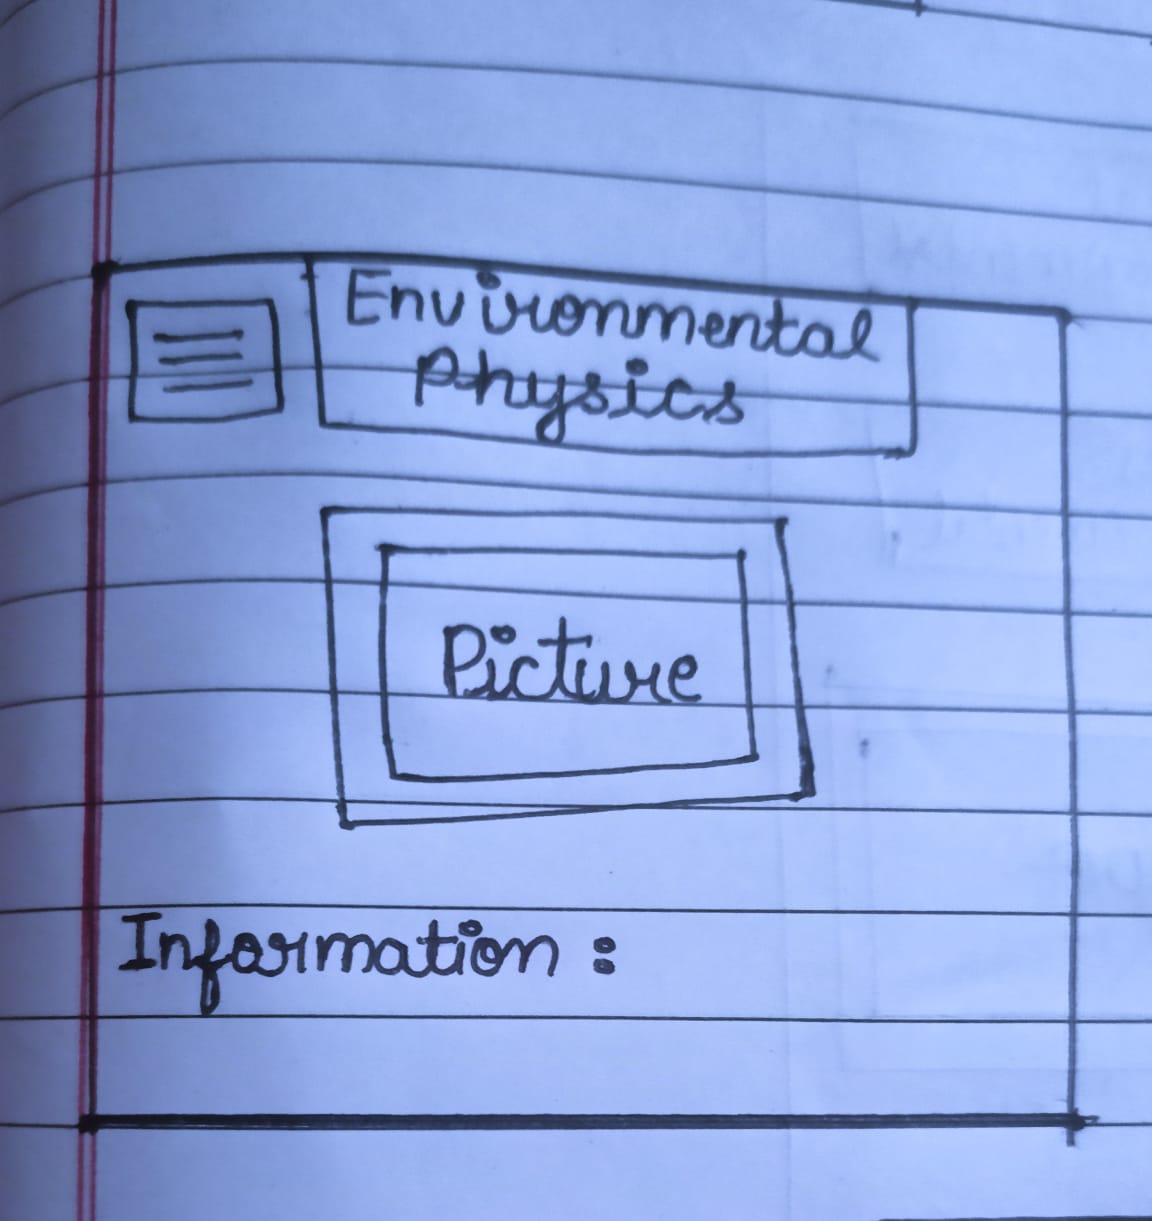 Environmental
Physics
Picture
Information :